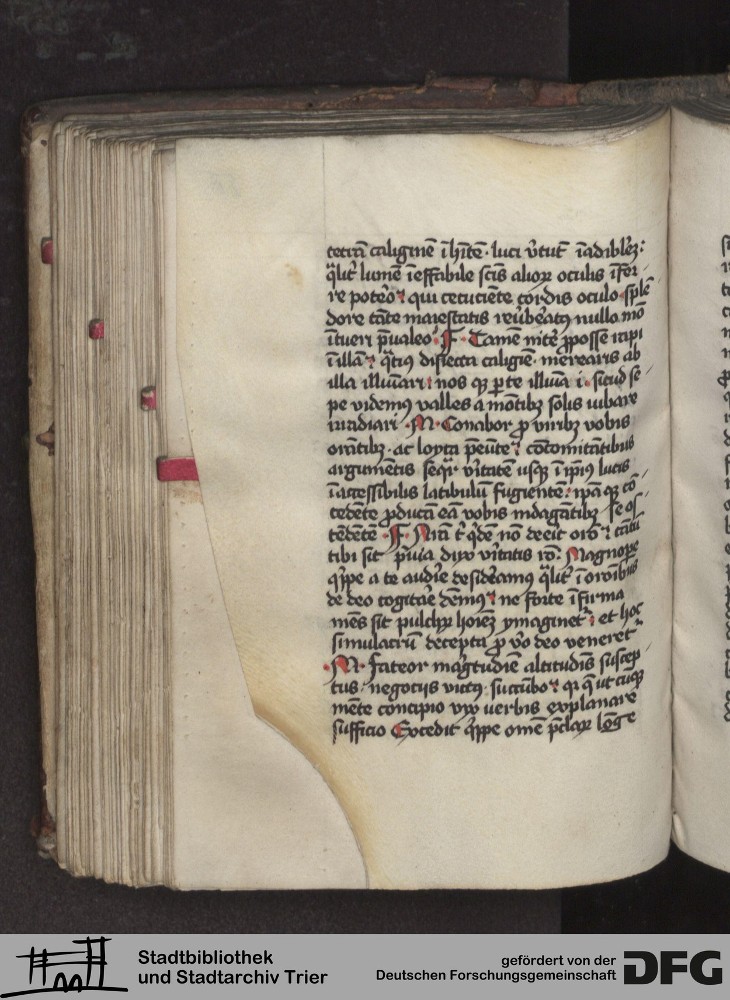 tetrā caliginē īhītē · luci v̄tut̄ īadiblez :
q̄lit̓ lumē īeffabile scīs alioꝝ oculis īfer
re poteō ? qui cecuciēte cordis oculo splē
dore tāte maiestatis reūbeatꝰ nullo mō
ītueri p̄ualeo · F · Tamē nite ꝓposse rapi
ī illā ? q̄tiꝰ disiecta caligīe · merearis ab
illa illuīari : nos qꝫ ꝑ te illuīa i · sicud se
pe videmꝰ valles a mōtibꝫ solis iubare
irradiari · M · Conabor ꝓ viribꝫ vobis
orātibꝫ · ac loyca p̄eūte ? cōcomitātibus
argumētis seq̄r v̄itatē usqꝫ ī ip̄iꝰ lucis
īaccessibilis latibulū fugientē : ip̄āqꝫ cō
tēdēte ꝓducā eā vobis indagātibꝫ se os
tēdētē · F · Nrā t̄ q̄dē nō decit oīō ? tātū
tibi sit p̄uia dux v̄itatis rō : Magnope
q̄ppe a te audīe desideramꝰ q̄lit̓ ī orōnibus
de deo cogitāe dēmꝰ ? ne forte īfirma
mēs sit pulchꝝ hoīez ymaginet̓ : et hoc
simulacrū decepta ꝓ v̓o deo veneret̓
· M · Fateor mag̓tudīe altitudīs suscep
tus · negocijs victꝰ · succūbo ? qꝛ q̄ utcūqꝫ
mēte concipio vix uerbis explanare
sufficio Excedit q̄ppe omē p̄claꝝ lōge
Stadtbibliothek
und Stadtarchiv Trier
gefördert von der
Deutschen Forschungsgemeinschaft
DFG